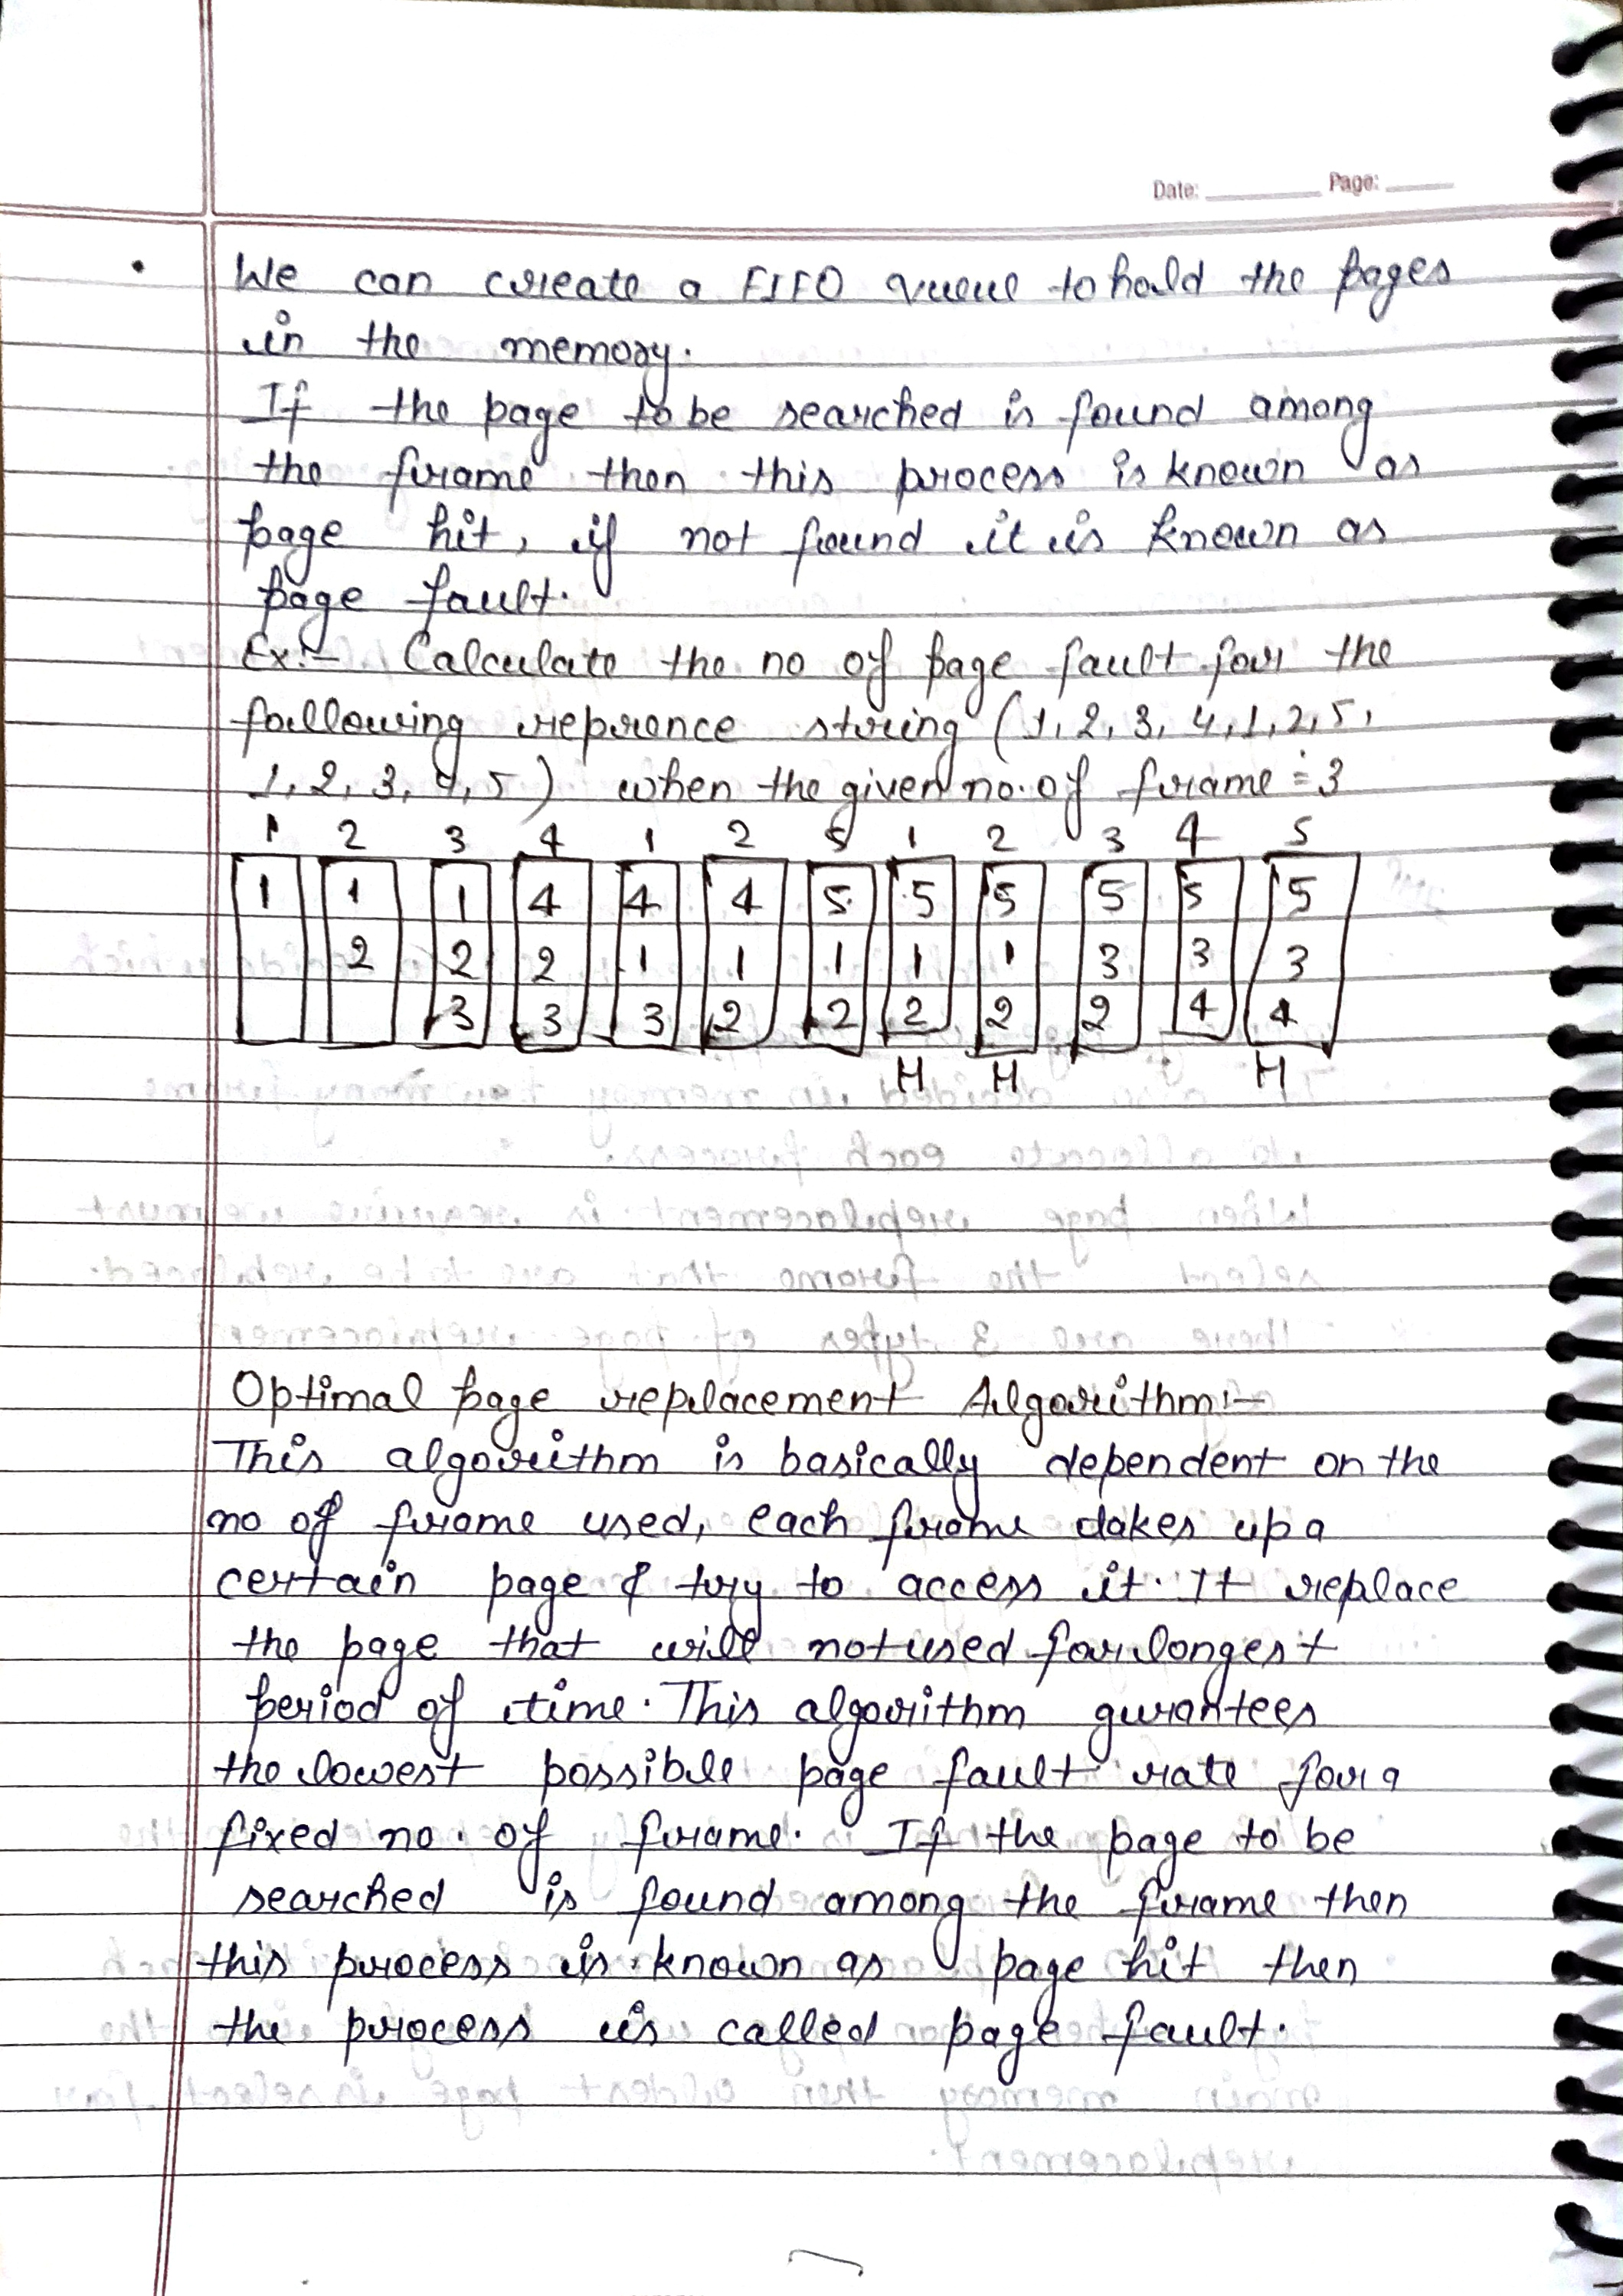 Date: Page:
• We can create a FIFO queue to hold the pages
in the memory.
If the page to be searched is found among
the frame then this process is known as
page hit, if not found it is known as
page fault.
Ex:- Calculate the no of page fault for the
following reprence string (1, 2, 3, 4, 1, 2, 5,
1, 2, 3, 4, 5) when the given no. of frame = 3
1 2 3 4 1 2 5 1 2 3 4 5
1 1 1 4 4 4 5 5 5 5 5 5
2 2 2 1 1 1 1 1 3 3 3
3 3 3 2 2 2 2 2 4 4
H H H
Optimal page replacement Algorithm:-
This algorithm is basically dependent on the
no of frame used, each frame takes up a
certain page & try to access it. It replace
the page that will not used for longest
period of time. This algorithm gurantees
the lowest possible page fault rate for a
fixed no. of frame. If the page to be
searched is found among the frame then
this process is known as page hit then
the process is called page fault.